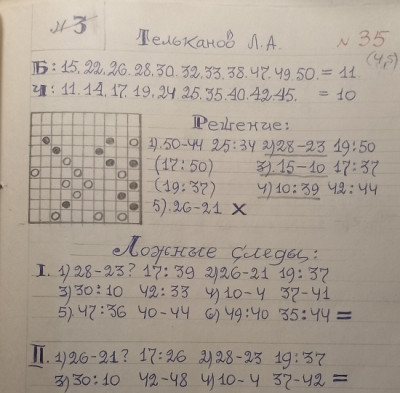 №3
Тельканов Л.А.
№ 35
(4,5)
Б: 15, 22, 26. 28, 30. 32. 33. 38. 47. 49. 50. = 11.
Ч: 11. 14. 17. 19, 24. 25, 35. 40. 42. 45. = 10
Решение:
1). 50-44 25:34 2) 28-23 19:50
(17:50) 3). 15-10 17:37
(19:37) 4) 10:39 42:44
5). 26-21 X
Ложные следы:
I. 1) 28-23? 17:39 2) 26-21 19:37
3) 30:10 42:33 4) 10-4 37-41
5). 47:36 40-44 6) 49:40 35:44 =
II. 1) 26-21? 17:26 2) 28-23 19:37
3) 30:10 42-48 4) 10-4 37-42 =